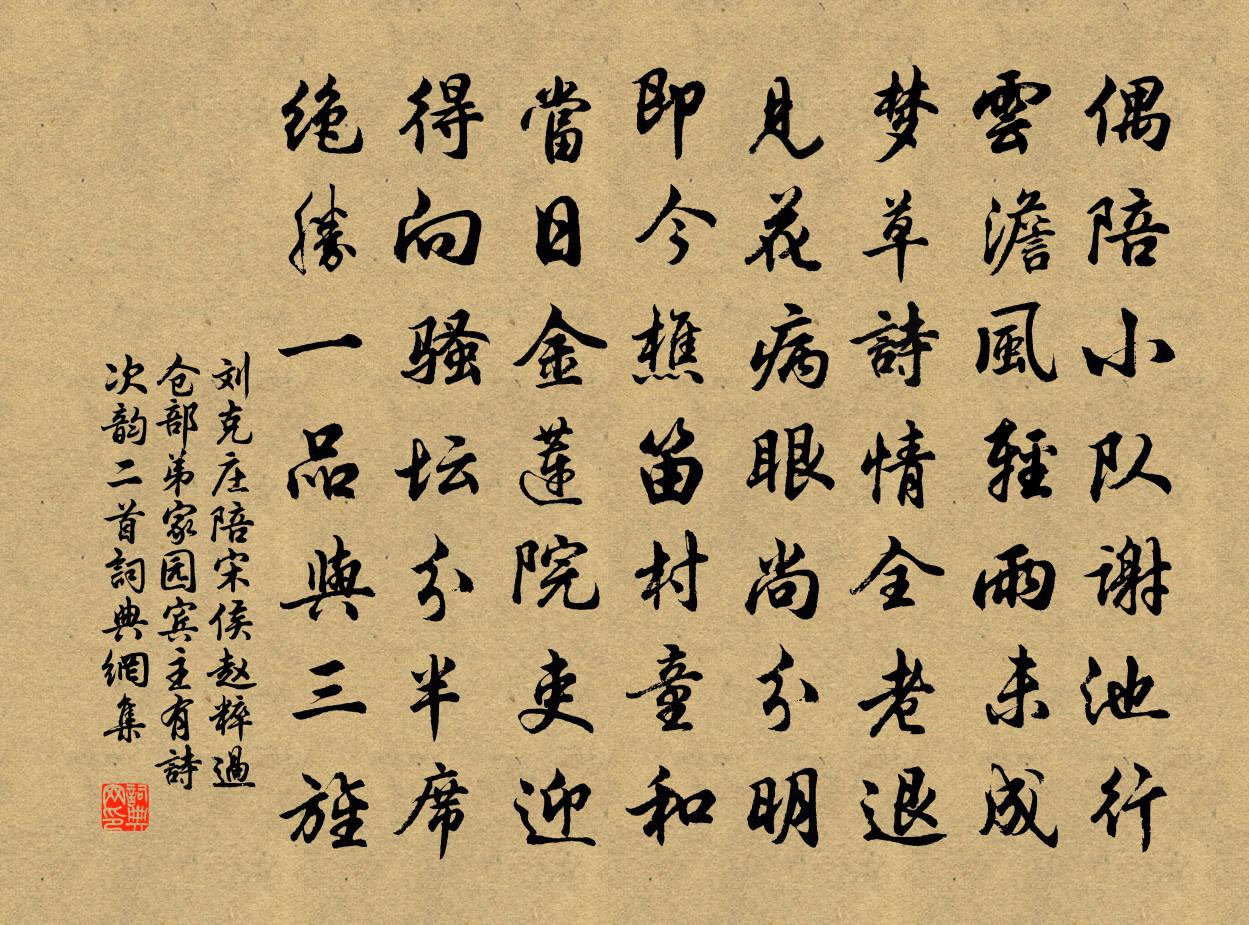 偶陪小队谢池行
雲澹風輕雨未成
梦草詩情全老退
見花病眼尚分明
即今樵笛村童和
當日金蓮院吏迎
得向骚坛分半席
绝勝一品與三旌
刘克庄陪宋侯赵粹過
仓部弟家园宾主有詩
次韵二首詞典網集
詞典
网印